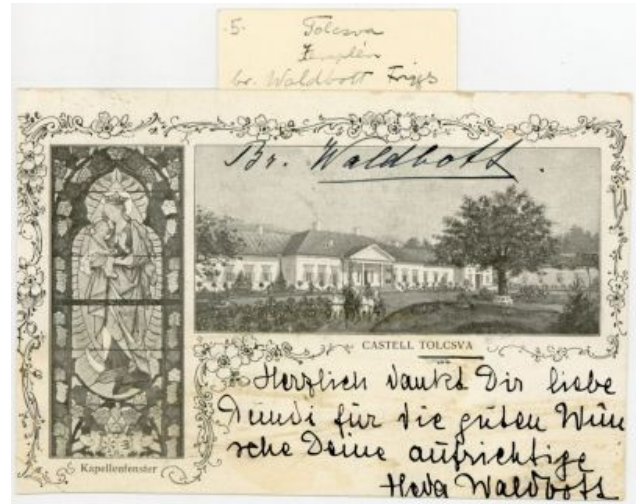 5. Tolcsva
Zemplén
br. Waldbott Frigyes
Br. Waldbott.
CASTELL TOLCSVA
Kapellenfenster
Herzlich dankt Dir liebe
für die guten Wün
sche Deine aufrichtige
Waldbott